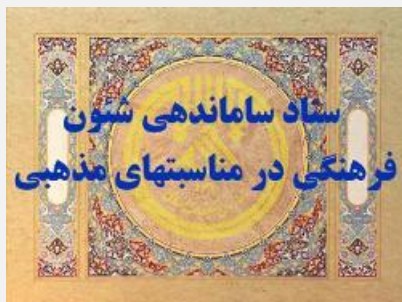 ستاد ساماندهی شئون
فرهنگی در مناسبتهای مذهبی